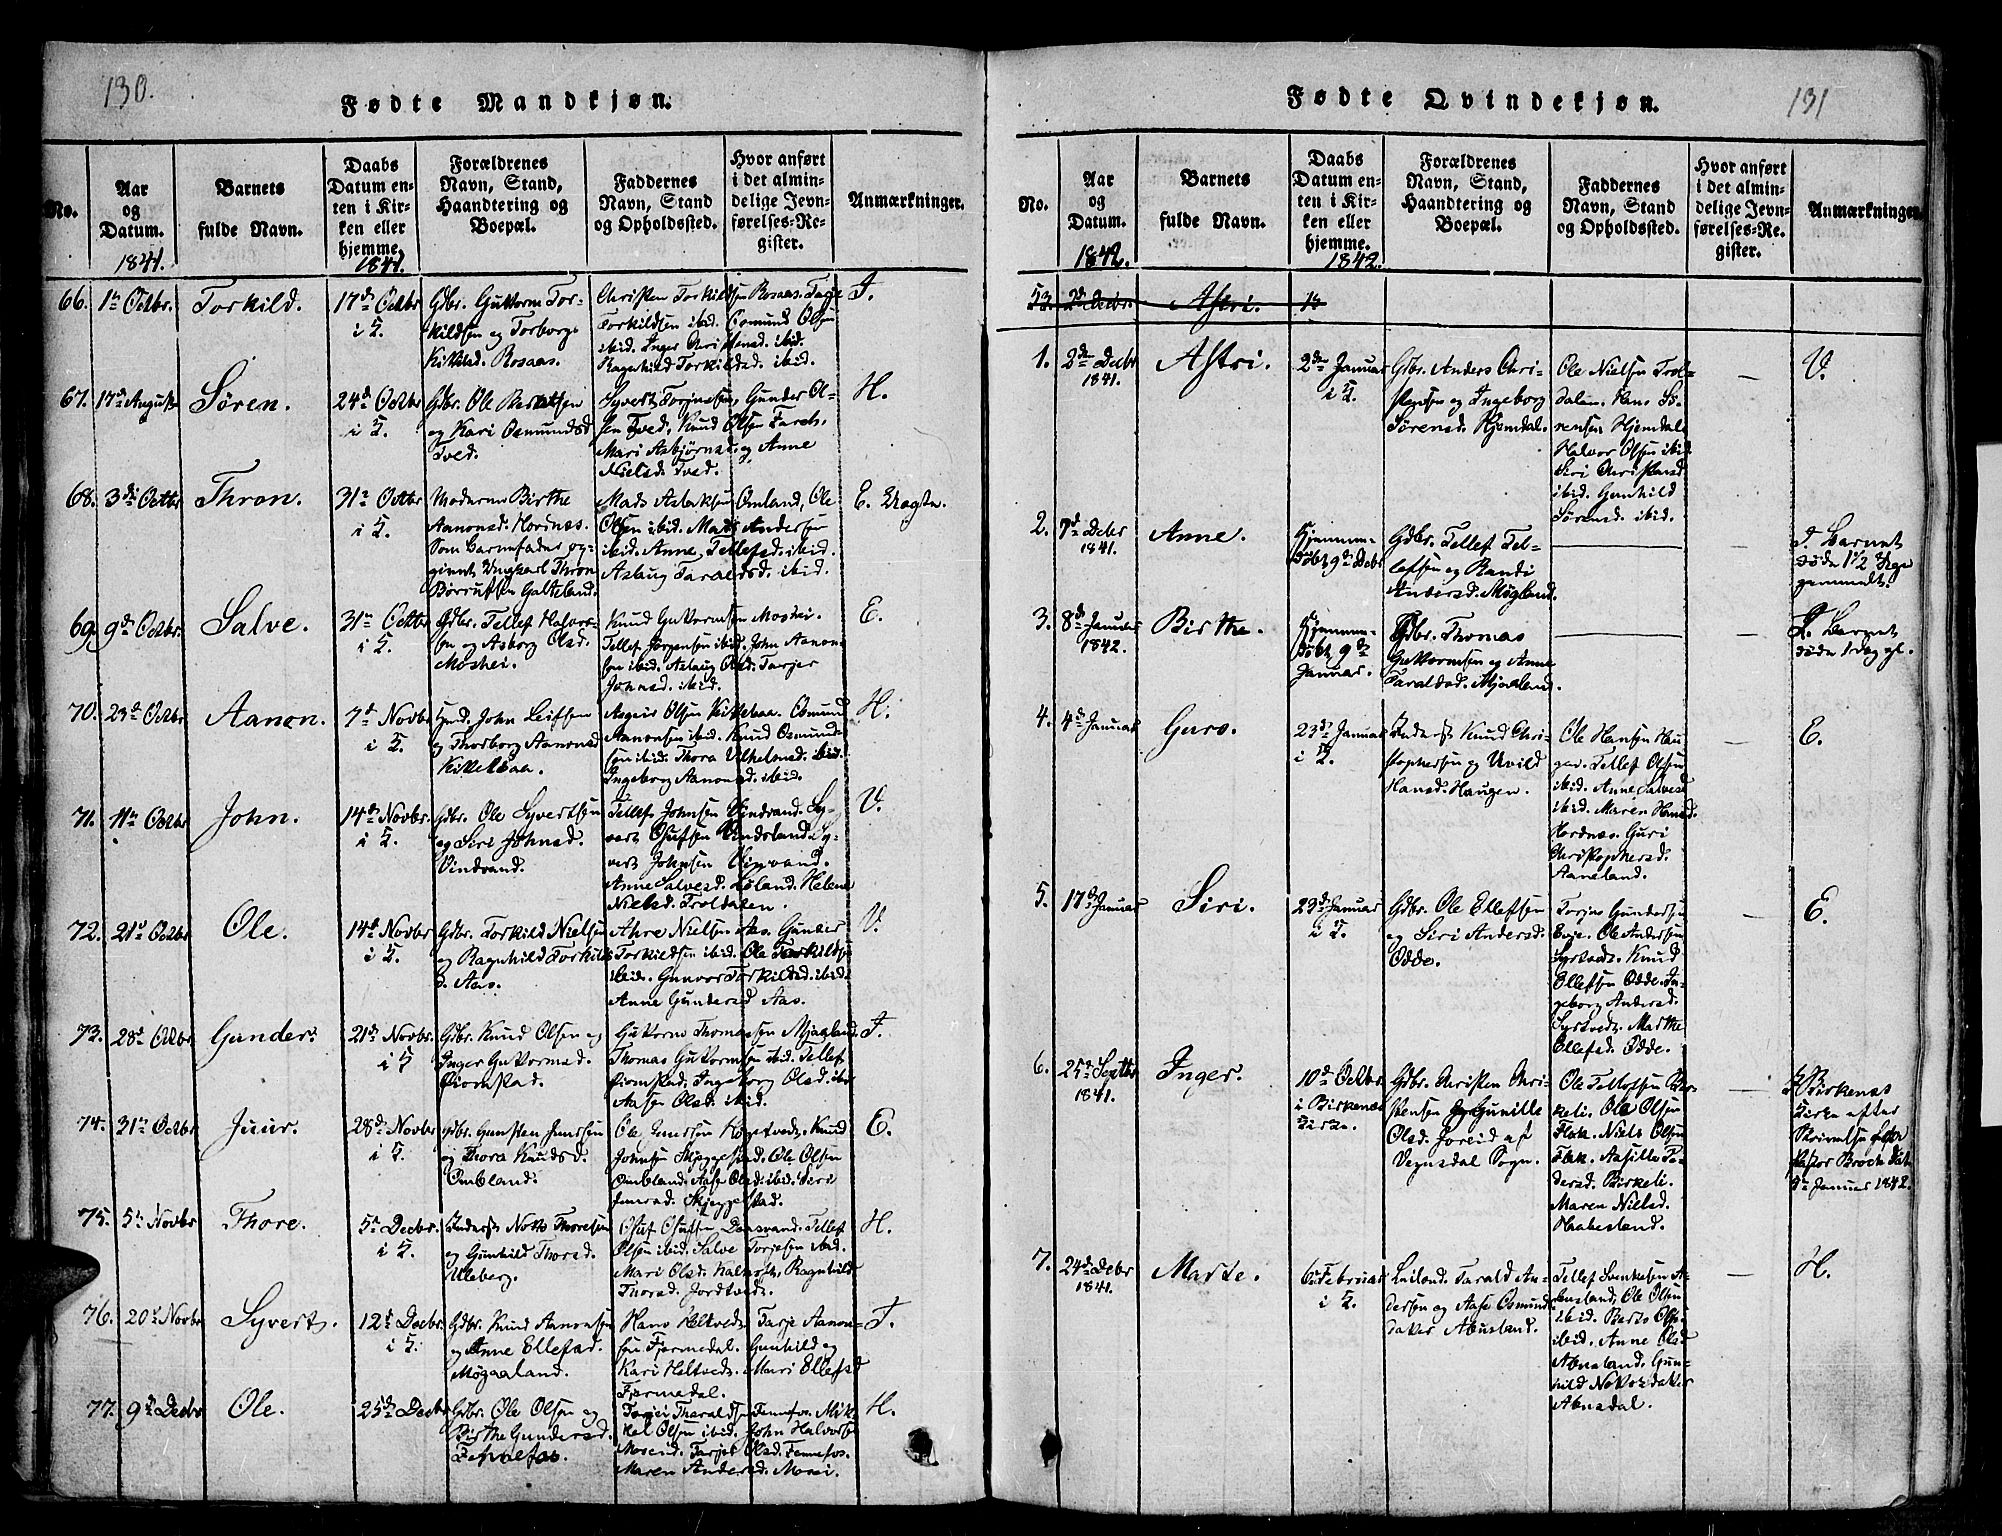 130.
Fødte Mandkjøn.
No.
Aar og Datum.
Barnets fulde Navn.
Daabs Datum enten i Kirken eller hjemme.
Forældrenes Navn, Stand, Haandtering og Boepæl.
Faddernes Navn, Stand og Opholdssted.
Hvor anført i det almindelige Jevnførelses-Register.
Anmærkninger.
1841.
1841.
66. 1n Octbr. Torkild. 17de Octbr i K.
Gdbr. Guttorm Torkildsen og Torborg
Rosaas.
Christen Torkildsen Rosaas. Tarje
Torkildsen ibid. Osmund Olsen
ibid. Inger Christensd. ibid.
Ragnhild Torkildsd. ibid.
T.
67. 17de August Søren. 24de Octbr
Gdbr. Ole
og Kari Osmundsd
Tved.
Syvert Torjussen, Gunder Ol-
sen Tved. Knud Olsen
Mari Asbjørnsd. og Anne
Nielsd. Tved.
H.
68. 3de Octbr Thron. 31n Octbr
Moderen Birthe
Aanonsd. Hornæs.
Som Barnefader op-
givet Ungkarl Thron
Galteland.
Mads Aslaksen Omland, Ole
Olsen ibid. Mads Andersen
ibid. Anne Tellefsd. ibid.
Aslaug Taraldsd. ibid.
E. Uægte.
69. 9de Octbr. Salve. 31n Octbr
Gdbr. Tellef Halvor-
sen og Asborg Olsd.
Moshei.
Knud Guttormsen Moshei.
Tellef Jørgensen ibid. John Aanon-
sen ibid. Aslaug Olsd. Tarjer
Johnsd. ibid.
E.
70. 23de Octbr Aanon. 7de Novbr
John Leifsen
og Thorborg Aanonsd
Kittelsaa.
Asgeir Olsen Kittelsaa. Osmund
Aanonsen ibid. Knud Osmund-
sen ibid. Thora Vilhelmsd. ibid.
Ingeborg Aanonsd. ibid.
H.
71. 11n Octbr John. 14de Novbr.
Gdbr. Ole Syvertsen
og Siri Johnsd.
Vindvand.
Tellef Johnsen Vindvand. Sy-
vert Olufsen Sy-
vert Johnsen
Anne Salvesd. Løland. Helene
Nielsd. Troldalen.
V.
72. 21de Octbr Ole. 14de Novbr
Gdbr. Torkild Nielsen
og Ragnhild Torkilds
d. Aas.
Ahre Nielsen Aas. Gunder
Torkildsen ibid. Ole Torkildsen
ibid. Gunvor Torkildsd. ibid.
Anne Gundersd Aas.
V.
73. 28de Octbr Gunder. 21de Novbr.
Gdbr. Knud Olsen og
Inger Guttormsd.
Guttorm Thomassen Mjaaland.
Thomas Guttormsen ibid. Tellef
Ingeborg Olsd. ibid
Aasen Olsd. ibid.
T.
74. 31n Octbr 28de Novbr
Gdbr.
og Thora Knudsd.
Ombland.
Knud
Johnsen Skjeggestad. Ole Olsen
Ombland. Aase Olsd. ibid. Siri
Skjeggestad.
E.
75. 5n Novbr Thore. 5n Decbr.
Thoresen
og Gunhild Thorsd.
Uleberg.
Oluf Olufsen Tellef
Olsen ibid. Salve Torjesen ibid.
Mari Olsd. Ragnhild
Thorsd. Jordtvedt.
H.
76. 20de Novbr Syvert. 12de Decbr.
Gdbr. Knud Aanonsen
og Anne Ellefsd.
Hans Heltvedt. Tarje Aanon-
sen Fjermedal. Gunhild og
Kari Heltvedt. Mari Ellefsd
Fjermedal.
T.
77. 9de Decbr Ole. 25de Decbr
Gdbr. Ole Olsen og
Birthe Gundersd.
Torjei Tharaldsen Fennefos. Mik-
kel Olsen ibid. John Halvorsen
Tarjer Olsd. Fennefos.
Maren Andersd. Moseid.
H.
131
Fødte Qvindekjøn.
No.
Aar og Datum.
Barnets fulde Navn.
Daabs Datum enten i Kirken eller hjemme.
Forældrenes Navn, Stand, Haandtering og Boepæl.
Faddernes Navn, Stand og Opholdssted.
Hvor anført i det almindelige Jevnførelses-Register.
Anmærkninger.
1842.
1842.
53. 2de Decbr. Astri.
1. 2de Decbr 1841. Astri. 2de Januar
Gdbr. Anders Chri-
stensen og Ingeborg
Sørensd. Hjemdal.
Ole Nielsen Trol-
dalen. Hans Sø-
rensen Hjemdal.
Halvor Olsen ibid.
Siri Christensd
ibid. Gunhild
Sørensd. ibid.
V.
2. 7de Decbr 1841. Anne. Hjemme-
døbt 9de Decbr
Gdbr. Tellef Tel-
lefsen og Randi
Andersd.
Barnet
døde 1 1/2 Uge
gammelt.
3. 8de Januar 1842. Birthe. Hjemme-
døbt 9de
Januar.
Gdbr. Thomas
Guttormsen og Anne
Taraldsd. Mjaaland.
Barnet
døde 1 Dag gl.
4. 4de Januar Guro. 23de Januar
Knud Chri-
stophersen og
Hansd. Haugen.
Ole Hansen Hau-
gen. Tellef Olsen
ibid. Anne Salvesd
ibid. Maren Hansd.
Hordnæs. Guri
Christophersd.
Aaneland.
E.
5. 17de Januar Siri. 23de Januar
Gdbr. Ole Ellefsen
og Siri Andersd.
Odde.
Torjus Gundersen
Evje. Ole Andersen
Syrtvedt. Knud
Ellefsen Odde. In-
geborg Andersd.
Syrtvedt. Marthe
Ellefsd. Odde.
E.
6. 25de Septbr 1841. Inger. 10de Octbr
i Birkenæs
Kirke.
Gdbr. Christen Chri-
stensen og Gunille
Olsd. Joreid af
Vegusdal Sogn.
Ole Tellefsen Bir-
keli. Ole Olsen
Flak. Niels Olsen
Flak. Aasille Pe-
dersd. Birkeli.
Maren Nielsd.
Haabesland.
Birkenæs
Kirke efter
Skrivelse fra
Pastor Broch dat.
5te Januar 1842.
7. 24de Decbr 1841. Marte. 6te Februar
Tarald An-
dersen og Aase Osmunds-
datter Abusland.
Tellef Svenkesen A-
busland, Ole Olsen
ibid. Olsen
ibid. Anne Olsd
Abusland. Gun-
hild
H.